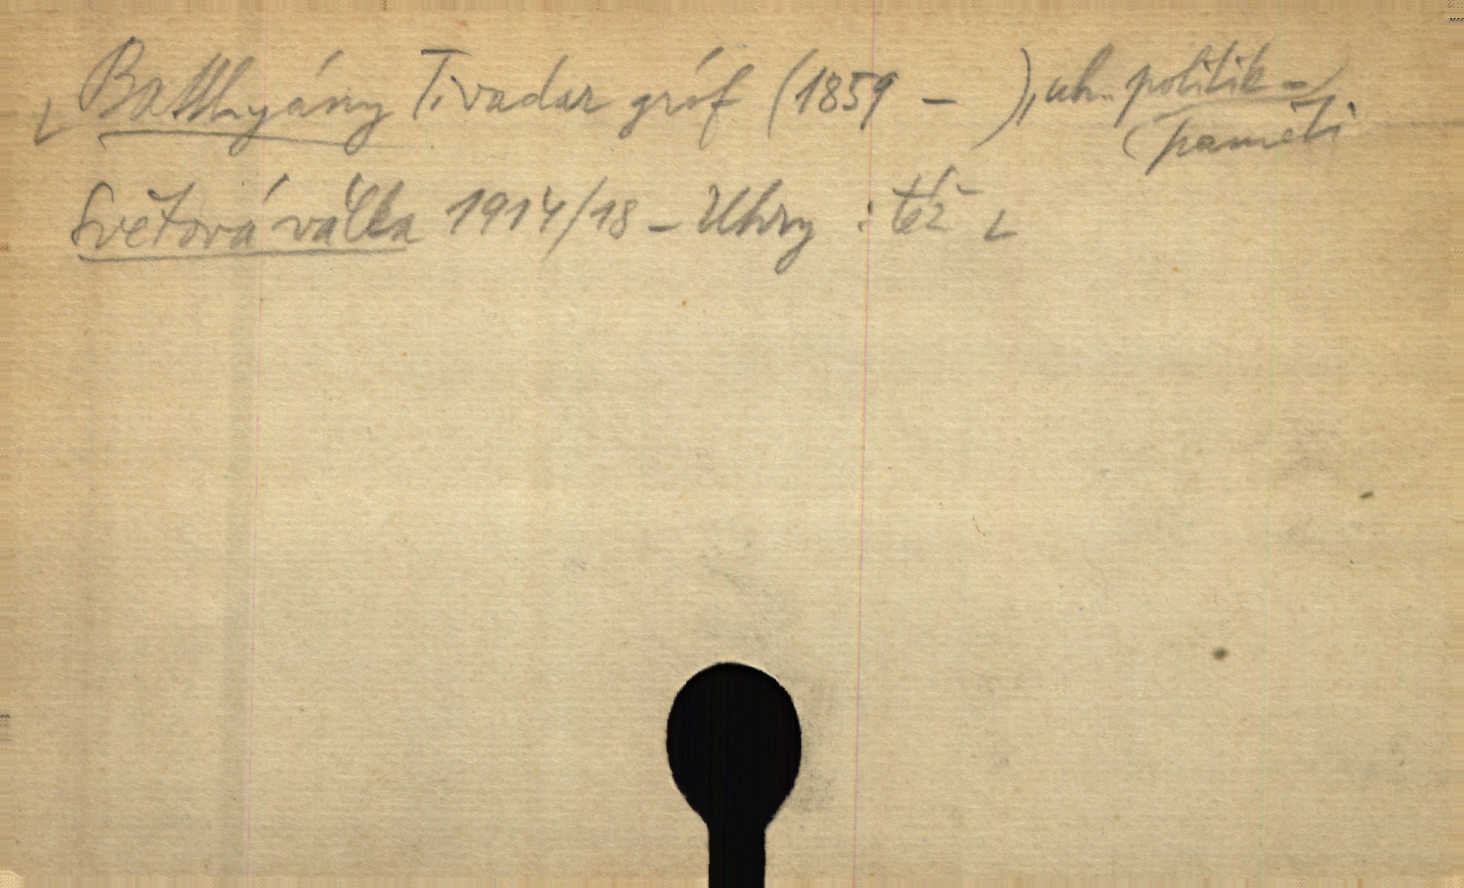 Batthyány Tivadar gróf (1859 – ), uh. politik –
(paměti
Světová válka 1914/18 – Uhry : též